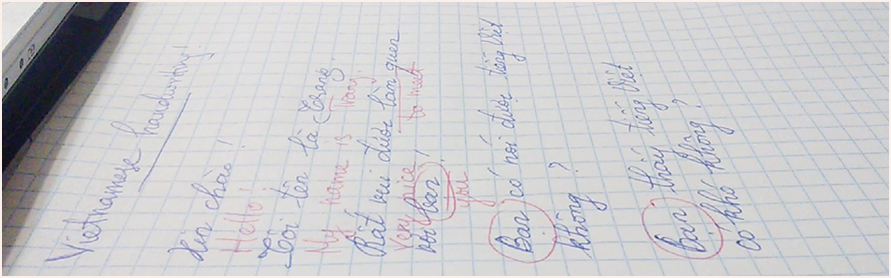 Vietnamese handwriting!
Xin chào!
Hello!
Tôi tên là Trang.
My name is Trang.
Rất vui được làm quen
Very nice to meet
với bạn!
you
Bạn có nói được tiếng Việt
không?
Bạn thấy tiếng Việt
có khó không?